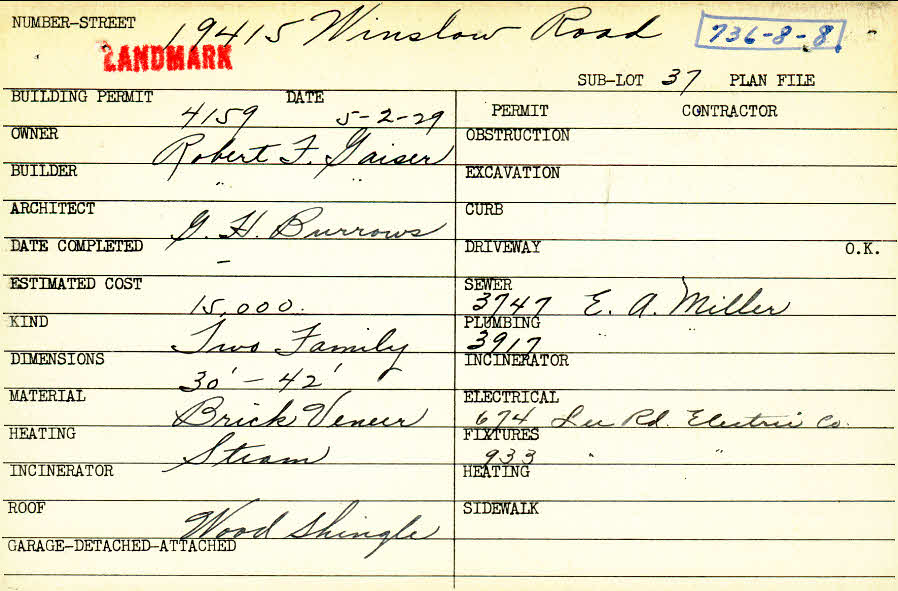 NUMBER-STREET 19415 Winslow Road 736-8-8
LANDMARK
SUB-LOT 37 PLAN FILE
BUILDING PERMIT 4159 DATE 5-2-29
PERMIT CONTRACTOR
OWNER Robert F. Gaiser
OBSTRUCTION
BUILDER " "
EXCAVATION
ARCHITECT G. H. Burrows
CURB
DATE COMPLETED -
DRIVEWAY O.K.
ESTIMATED COST 15,000.
SEWER 3747 E. A. Miller
KIND Two Family
PLUMBING 3917 " "
DIMENSIONS 30' - 42'
INCINERATOR
MATERIAL Brick Veneer
ELECTRICAL 674 Lee Rd. Electric Co.
HEATING Steam
FIXTURES 933 " "
INCINERATOR
HEATING
ROOF Wood Shingle
SIDEWALK
GARAGE-DETACHED-ATTACHED